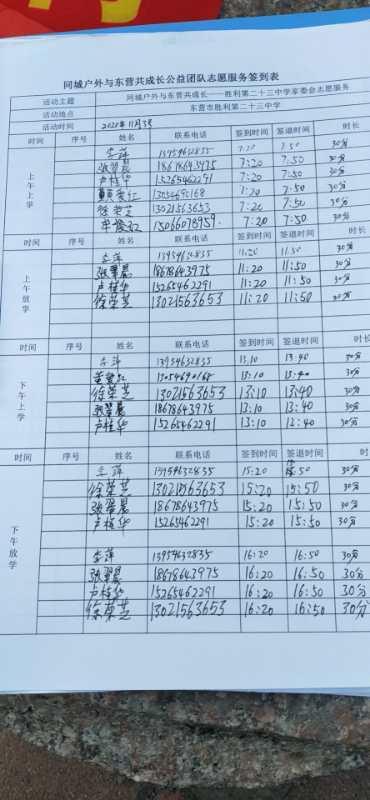 同城户外与东营共成长公益团队志愿服务签到表
活动主题 同城户外与东营共成长——胜利第二十三中学家委会志愿服务
活动地点 东营市胜利第二十三中学
活动时间
时间 序号 姓名 联系电话 签到时间 签退时间 时长
上午上学
李萍 13954632835 7:20 7:50 30分
张翠晨 18678643975 7:20 7:50 30分
卢桂华 15265462291 7:20 7:50 30分
7:20 7:50 30分
徐荣芝 13021563653 7:20 7:50 30分
7:20 7:50 30分
时间 序号 姓名 联系电话 签到时间 签退时间 时长
上午放学
李萍 13954632835 11:20 11:50 30分
张翠晨 18678643975 11:20 11:50 30分
卢桂华 15265462291 11:20 11:50 30分
徐荣芝 13021563653 11:20 11:50 30分
时间 序号 姓名 联系电话 签到时间 签退时间 时长
下午上学
李萍 13954632835 13:10 13:40 30分
13:10 13:40 30分
徐荣芝 13021563653 13:10 13:40 30分
张翠晨 18678643975 13:10 13:40 30分
卢桂华 15265462291 13:10 30分
时间 序号 姓名 联系电话 签到时间 签退时间 时长
下午放学
李萍 13954632835 15:20 30分
徐荣芝 13021563653 15:20 15:50 30分
张翠晨 18678643975 15:20 15:50 30分
卢桂华 15265462291 15:20 15:50 30分
李萍 13954632835 16:20 16:50 30分
张翠晨 18678643975 16:20 16:50 30分
卢桂华 15265462291 16:20 16:50 30分
徐荣芝 13021563653 16:20 16:50 30分